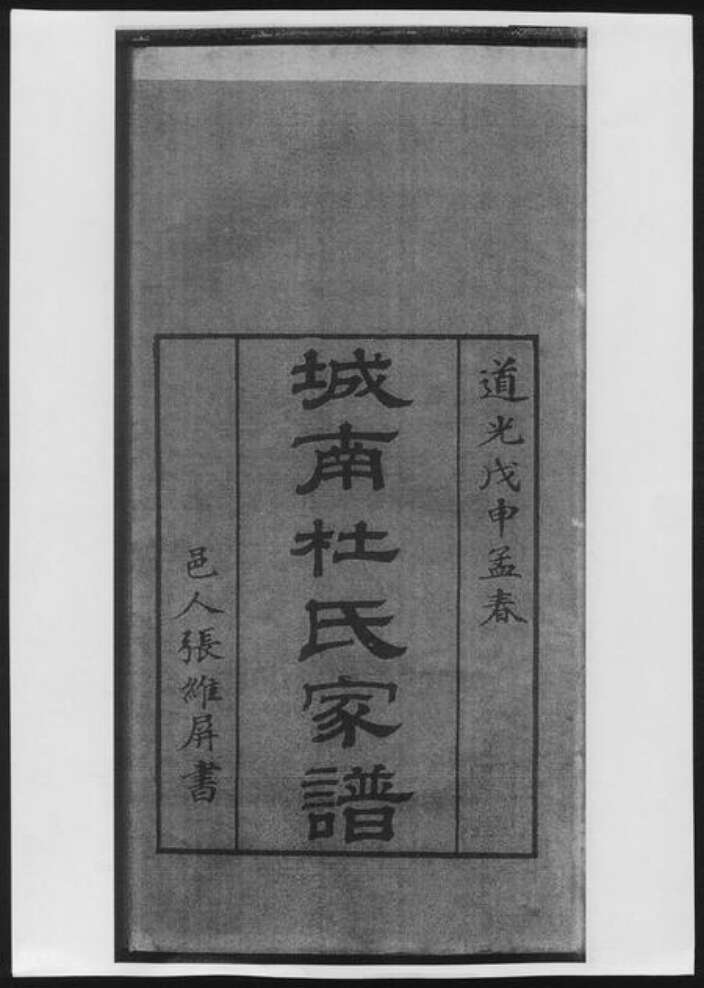 道光戊申孟春
城南杜氏家譜
邑人張維屏書